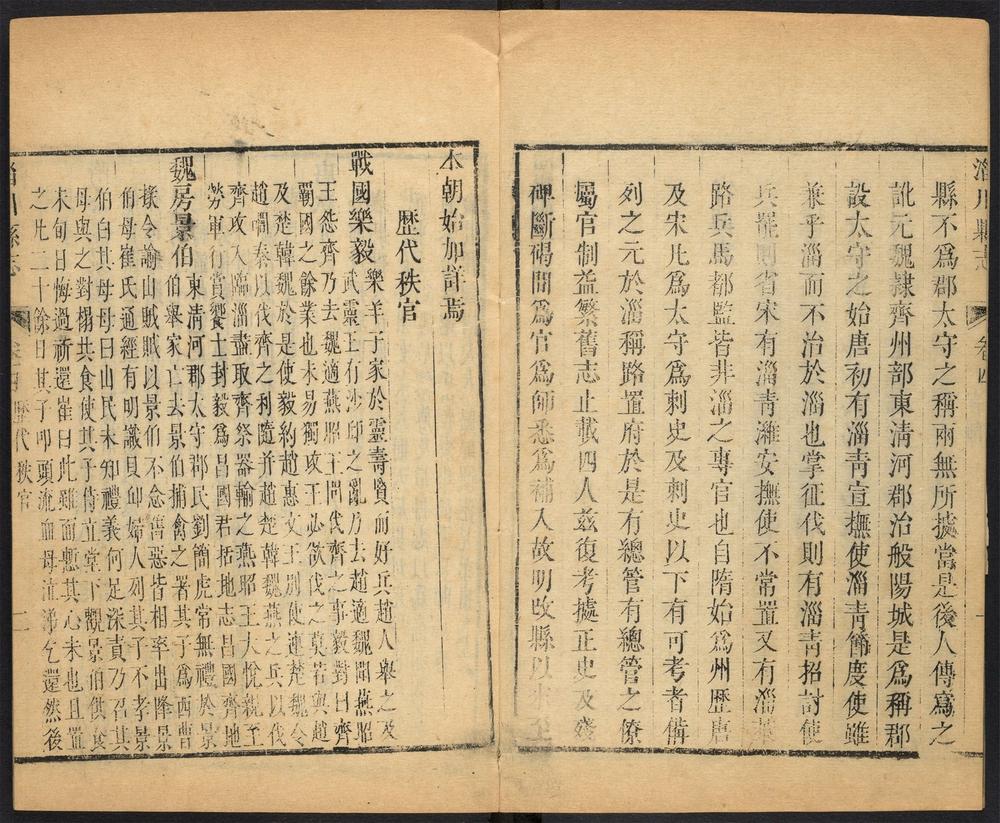 淄川縣志 卷四
縣不爲郡太守之稱兩無所據當是後人傳寫之
訛元魏隸齊州部東清河郡治般陽城是爲稱郡
設太守之始唐初有淄靑宣撫使淄靑節度使雖
兼乎淄而不治於淄也掌征伐則有淄靑招討使
兵罷則省宋有淄靑濰安撫使不常置又有淄萊
路兵馬都監皆非淄之專官也自隋始爲州歷唐
及宋凡爲太守爲刺史及刺史以下有可考者備
列之元於淄稱路置府於是有總管有總管之僚
屬官制益繁舊志止載四人茲復考據正史及殘
碑斷碣間爲官爲師悉爲補入故明改縣以來至
本朝始加詳焉
歷代秩官
戰國樂毅
樂羊子家於靈壽賢而好兵趙人舉之及
武靈王有沙邱之亂乃去趙適魏聞燕昭
王怨齊乃去魏適燕昭王問伐齊之事毅對曰齊
霸國之餘業也未易獨攻王必欲伐之莫若與趙
及楚韓魏於是使毅約趙惠文王別使連楚魏令
趙嚪秦以伐齊之利隨并趙楚韓魏燕之兵以伐
齊攻入臨淄盡取齊祭器輸之燕昭王大悅親至
勞軍行賞饗士封毅爲昌國君括地志昌國齊地
魏房景伯
東清河郡太守郡民劉簡虎常無禮於景
伯舉家亡去景伯捕禽之署其子爲西曹
掾令諭山賊賊以景伯不念舊惡皆相率出降景
伯母崔氏通經有明識貝邱婦人列其子不孝景
伯白其母母曰山民未知禮義何足深責乃召其
母與之對榻共食使其子侍立堂下觀景伯供食
未旬日悔過祈還崔曰此雖面慙其心未也且置
之凡二十餘日其子叩頭流血母涕泣乞還然後
淄川縣志 卷四 歷代秩官 二